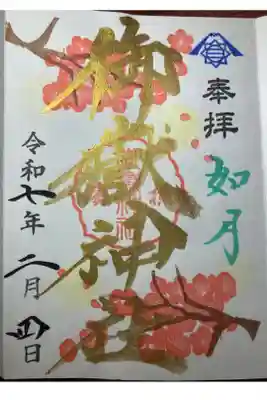 奉拝
如月
御嶽神社
令和七年
二月四日